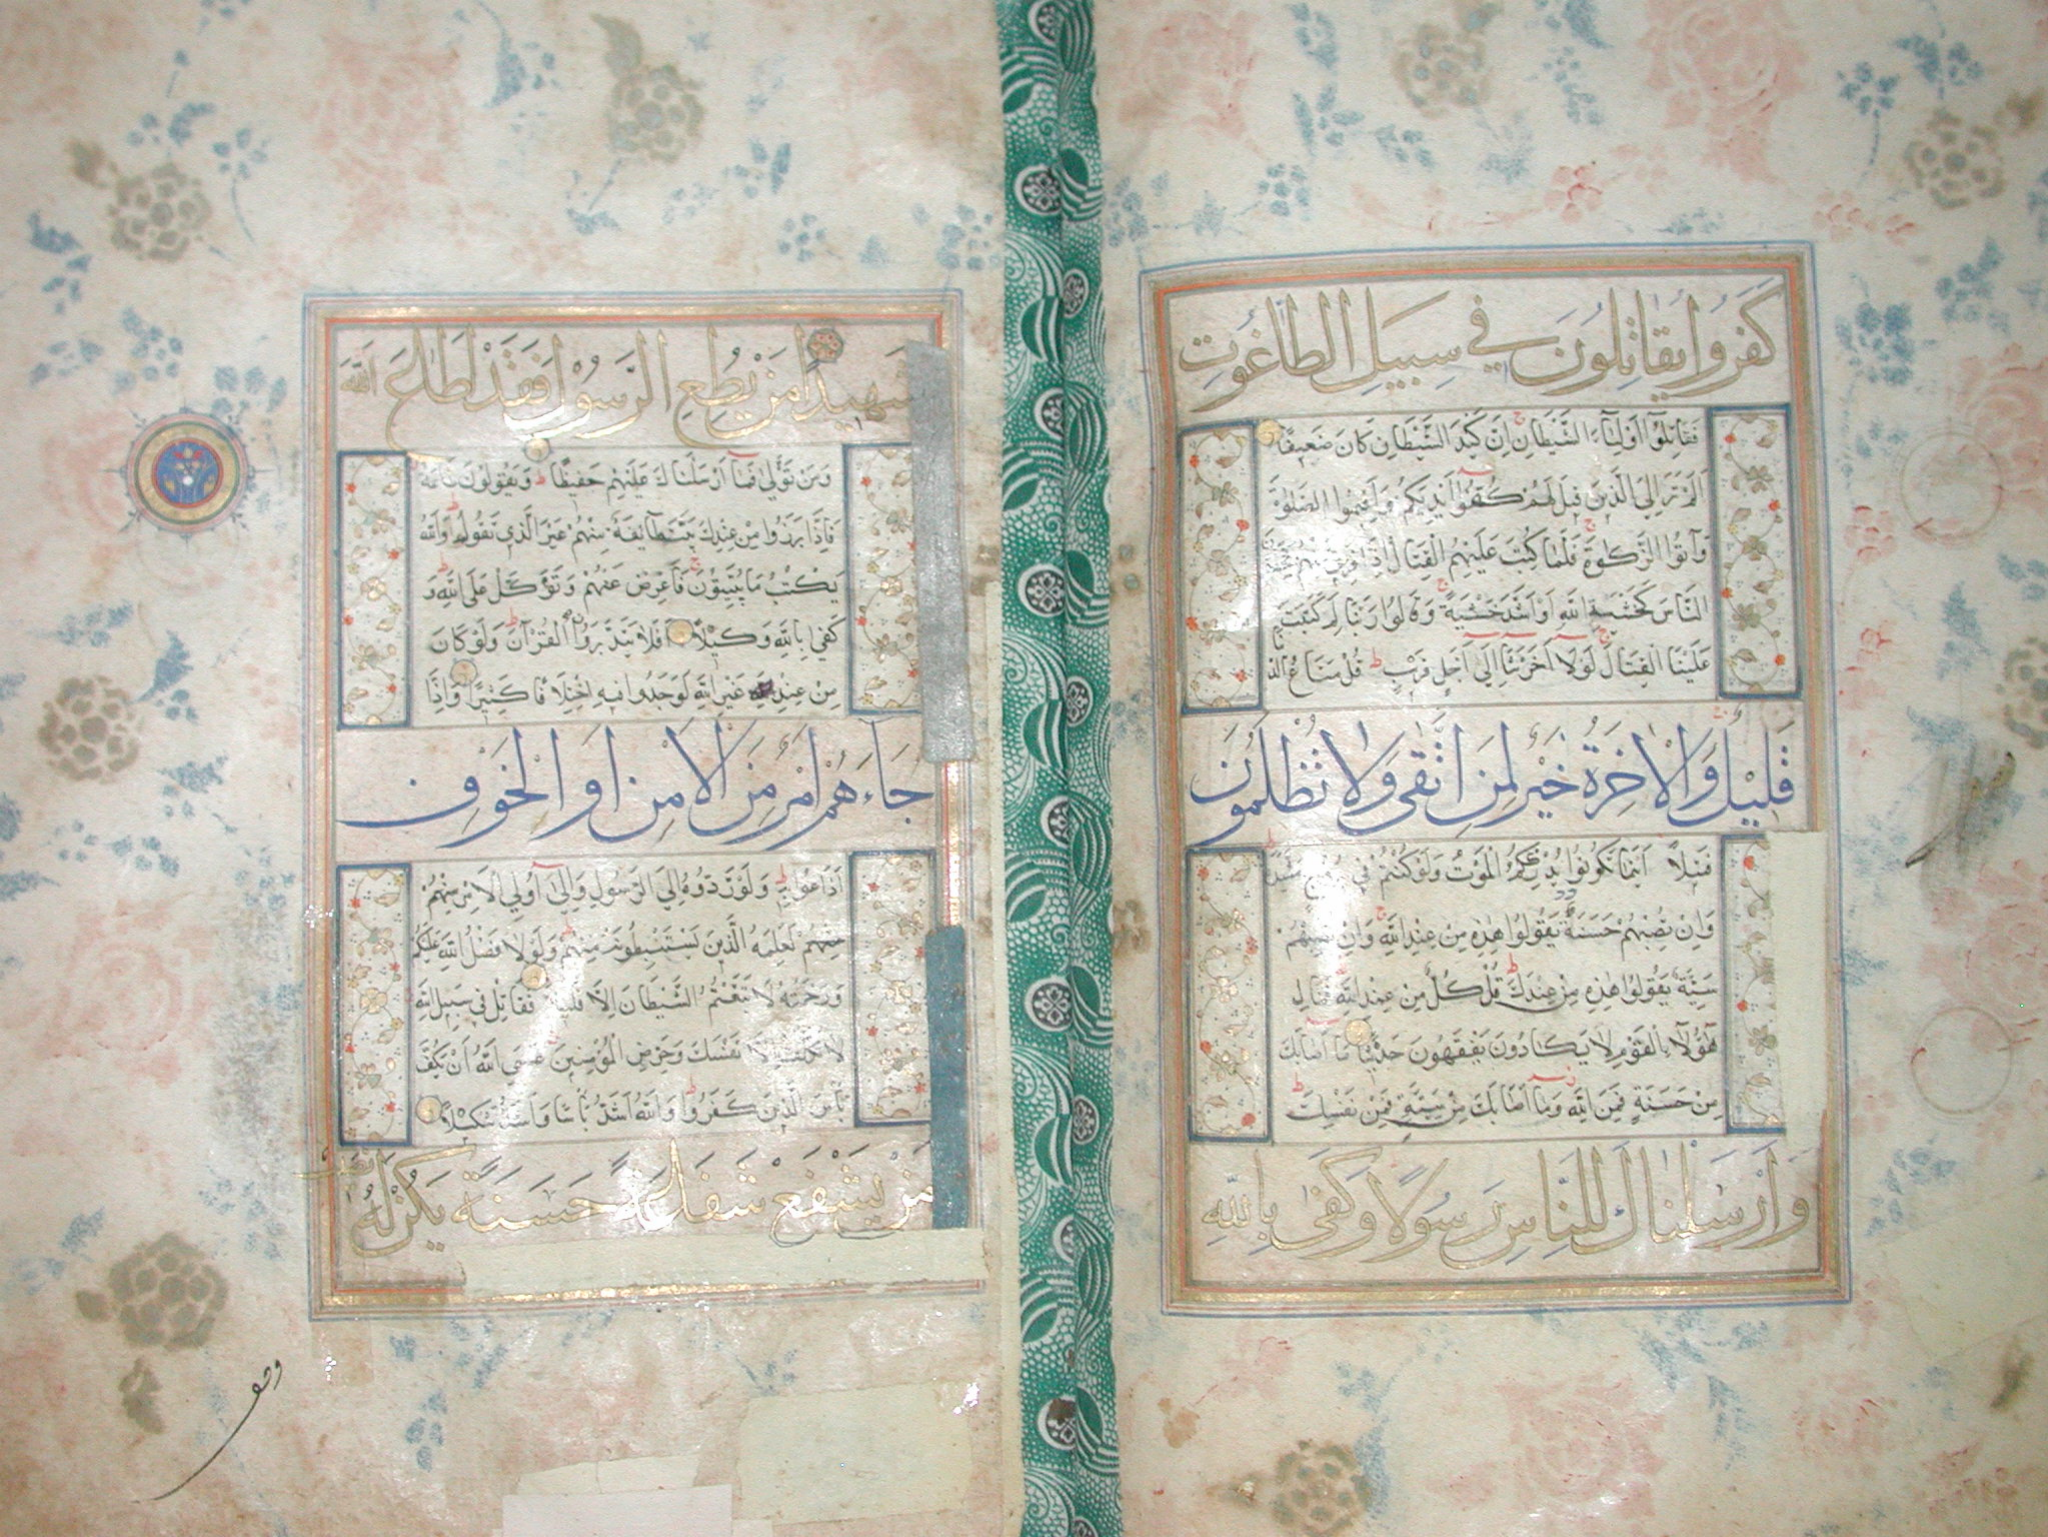 كَفَرُوا يُقَاتِلُونَ فِي سَبِيلِ الطَّاغُوتِ
فَقَاتِلُوا أَوْلِيَاءَ الشَّيْطَانِ إِنَّ كَيْدَ الشَّيْطَانِ كَانَ ضَعِيفًا
أَلَمْ تَرَ إِلَى الَّذِينَ قِيلَ لَهُمْ كُفُّوا أَيْدِيَكُمْ وَأَقِيمُوا الصَّلٰوةَ
وَآتُوا الزَّكٰوةَ فَلَمَّا كُتِبَ عَلَيْهِمُ الْقِتَالُ إِذَا فَرِيقٌ مِنْهُمْ يَخْشَوْنَ
النَّاسَ كَخَشْيَةِ اللّٰهِ أَوْ أَشَدَّ خَشْيَةً وَقَالُوا رَبَّنَا لِمَ كَتَبْتَ
عَلَيْنَا الْقِتَالَ لَوْلَا أَخَّرْتَنَا إِلَى أَجَلٍ قَرِيبٍ قُلْ مَتَاعُ الدُّنْيَا
قَلِيلٌ وَالْآخِرَةُ خَيْرٌ لِمَنِ اتَّقَى وَلَا تُظْلَمُونَ
فَتِيلًا أَيْنَمَا تَكُونُوا يُدْرِكْكُمُ الْمَوْتُ وَلَوْ كُنْتُمْ فِي
وَإِنْ تُصِبْهُمْ حَسَنَةٌ يَقُولُوا هٰذِهِ مِنْ عِنْدِ اللّٰهِ وَإِنْ تُصِبْهُمْ
سَيِّئَةٌ يَقُولُوا هٰذِهِ مِنْ عِنْدِكَ قُلْ كُلٌّ مِنْ عِنْدِ اللّٰهِ فَمَالِ
هٰؤُلَاءِ الْقَوْمِ لَا يَكَادُونَ يَفْقَهُونَ حَدِيثًا مَا أَصَابَكَ
مِنْ حَسَنَةٍ فَمِنَ اللّٰهِ وَمَا أَصَابَكَ مِنْ سَيِّئَةٍ فَمِنْ نَفْسِكَ
وَأَرْسَلْنَاكَ لِلنَّاسِ رَسُولًا وَكَفَى بِاللّٰهِ
شَهِيدًا مَنْ يُطِعِ الرَّسُولَ فَقَدْ أَطَاعَ اللّٰهَ
وَمَنْ تَوَلَّى فَمَا أَرْسَلْنَاكَ عَلَيْهِمْ حَفِيظًا وَيَقُولُونَ طَاعَةٌ
فَإِذَا بَرَزُوا مِنْ عِنْدِكَ بَيَّتَ طَائِفَةٌ مِنْهُمْ غَيْرَ الَّذِي تَقُولُ وَاللّٰهُ
يَكْتُبُ مَا يُبَيِّتُونَ فَأَعْرِضْ عَنْهُمْ وَتَوَكَّلْ عَلَى اللّٰهِ وَ
كَفَى بِاللّٰهِ وَكِيلًا أَفَلَا يَتَدَبَّرُونَ الْقُرْآنَ وَلَوْ كَانَ
مِنْ عِنْدِ غَيْرِ اللّٰهِ لَوَجَدُوا فِيهِ اخْتِلَافًا كَثِيرًا وَإِذَا
جَاءَهُمْ أَمْرٌ مِنَ الْأَمْنِ أَوِ الْخَوْفِ
أَذَاعُوا بِهِ وَلَوْ رَدُّوهُ إِلَى الرَّسُولِ وَإِلَى أُولِي الْأَمْرِ مِنْهُمْ
لَعَلِمَهُ الَّذِينَ يَسْتَنْبِطُونَهُ مِنْهُمْ وَلَوْلَا فَضْلُ اللّٰهِ عَلَيْكُمْ
وَرَحْمَتُهُ لَاتَّبَعْتُمُ الشَّيْطَانَ إِلَّا قَلِيلًا فَقَاتِلْ فِي سَبِيلِ اللّٰهِ
لَا تُكَلَّفُ إِلَّا نَفْسَكَ وَحَرِّضِ الْمُؤْمِنِينَ عَسَى اللّٰهُ أَنْ يَكُفَّ
بَأْسَ الَّذِينَ كَفَرُوا وَاللّٰهُ أَشَدُّ بَأْسًا وَأَشَدُّ تَنْكِيلًا
مَنْ يَشْفَعْ شَفَاعَةً حَسَنَةً يَكُنْ لَهُ نَصِيبٌ
وقف